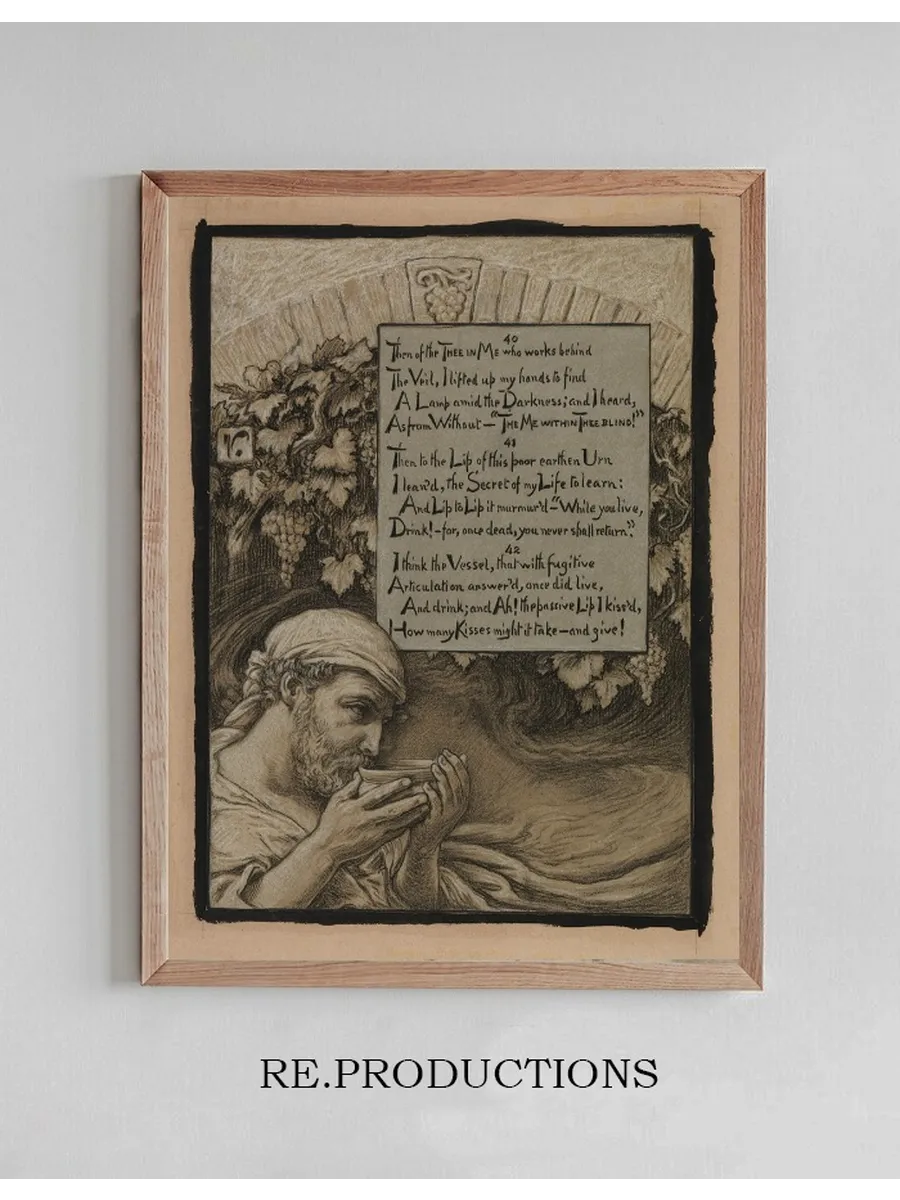 40
Then of the THEE IN ME who works behind
The Veil, I lifted up my hands to find
A Lamp amid the Darkness; and I heard,
As from Without—"THE ME WITHIN THEE BLIND!"
41
Then to the Lip of this poor earthen Urn
I lean'd, the Secret of my Life to learn:
And Lip to Lip it murmur'd—"While you live,
Drink!—for, once dead, you never shall return."
42
I think the Vessel, that with fugitive
Articulation answer'd, once did live,
And drink; and Ah! the passive Lip I kiss'd,
How many Kisses might it take—and give!
RE.PRODUCTIONS